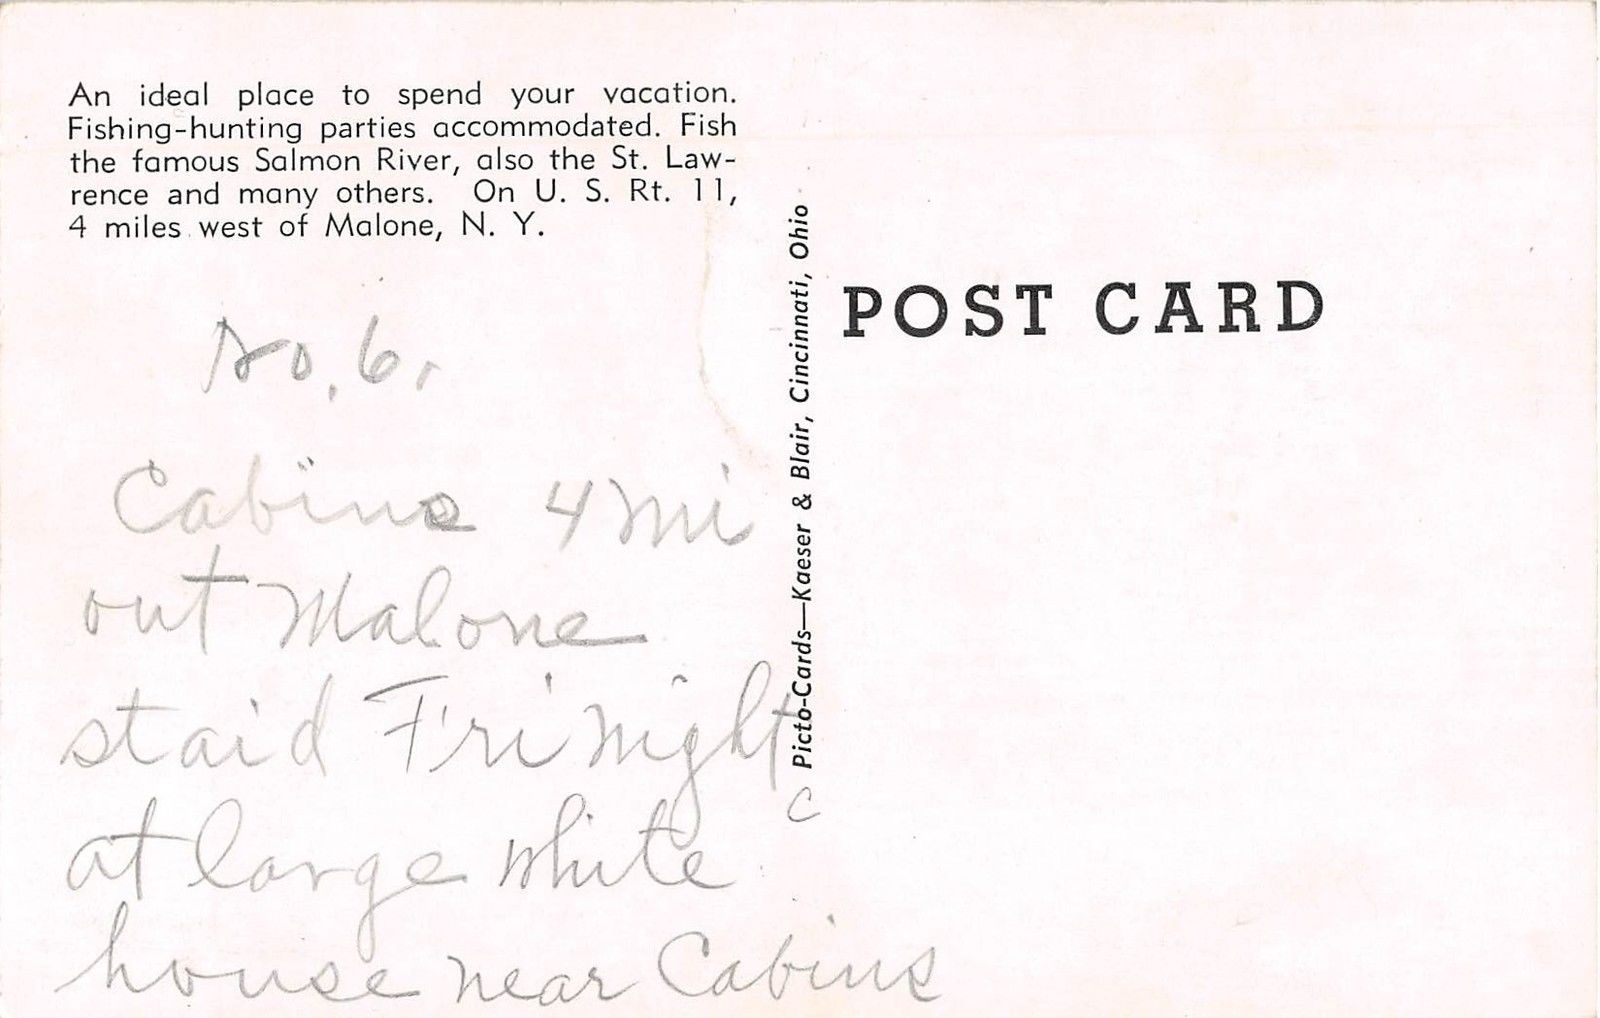 An ideal place to spend your vacation.
Fishing-hunting parties accommodated. Fish
the famous Salmon River, also the St. Law-
rence and many others. On U. S. Rt. 11,
4 miles west of Malone, N. Y.
No. 6.
Cabins 4 mi
out Malone
staid Fri night
at large white
house near Cabins
C
Picto-Cards—Kaeser & Blair, Cincinnati, Ohio
POST CARD